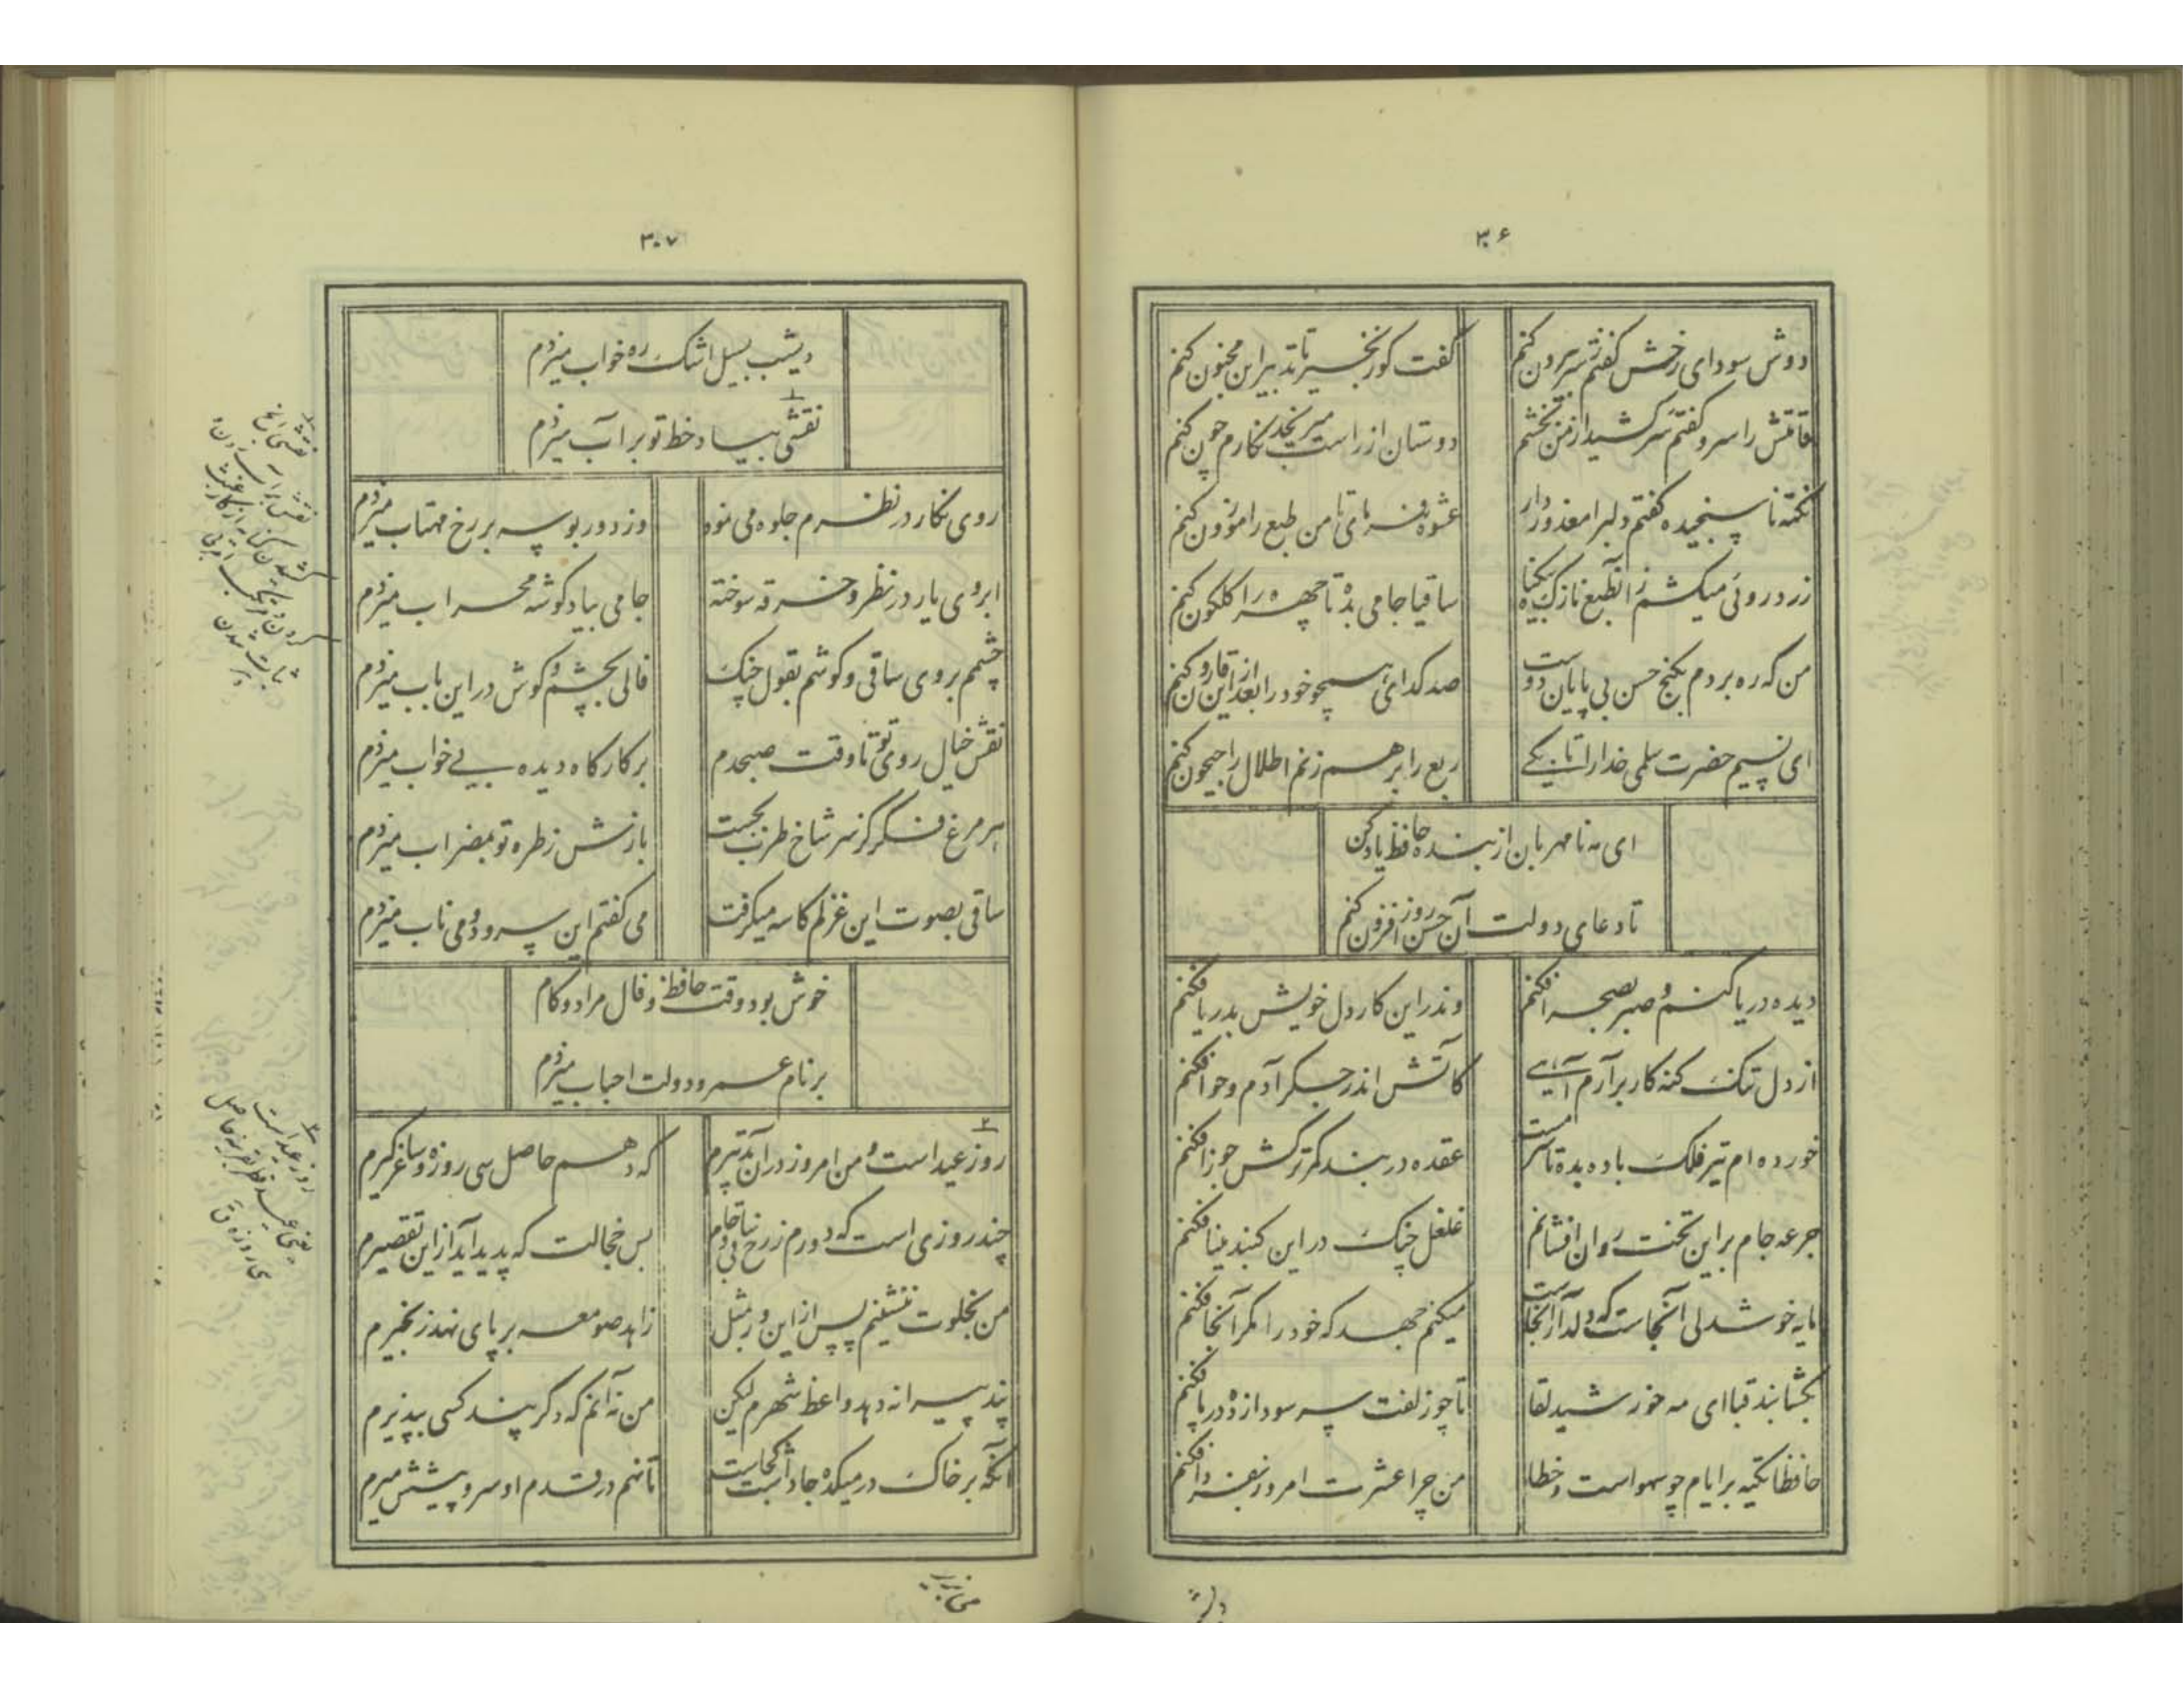 ۳۰۶
دوش سودای رخش گفتم ز سر بیرون کنم
گفت کو زنجیر تا تدبیر این مجنون کنم
قامتش را سرو گفتم سر کشید از من بخشم
دوستان از راست میرنجد نگارم چون کنم
نکته ناسنجیده گفتم دلبرا معذور دار
عشوه فرمای تا من طبع را موزون کنم
زرد روئی میکشم زانطبع نازک بیگناه
ساقیا جامی بده تا چهره را گلگون کنم
من که ره بردم بگنج حسن بی پایان دوست
صد گدای همچو خود را بعد از این قارون کنم
ای نسیم حضرت سلمی خدارا تا بکی
ربع را برهم زنم اطلال را جیحون کنم
ای مه نامهربان از بنده حافظ یاد کن
تا دعای دولت آن حسن روز افزون کنم
دیده دریا کنم و صبر بصحرا فکنم
وندر این کار دل خویش بدریا فکنم
از دل تنک گنه کار برآرم آهی
کاتش اندر جگر آدم و حوا فکنم
خورده ام تیر فلک باده بده تا سرمست
عقده در بند کمر ترکش جوزا فکنم
جرعه جام بر این تخت روان افشانم
غلغل چنک در این گنبد مینا فکنم
مایه خوشدلی آنجاست که دلدار آنجاست
میکنم جهد که خود را مگر آنجا فکنم
بگشا بند قبا ای مه خورشید لقا
تا چو زلفت سر سودازده در پا فکنم
حافظا تکیه بر ایام چو سهو است و خطا
من چرا عشرت امروز بفردا فکنم
۳۰۷
دیشب بسیل اشک ره خواب میزدم
نقشی بیاد خط تو بر آب میزدم
روی نگار در نظرم جلوه می نمود
وز دور بوسه بر رخ مهتاب میزدم
ابروی یار در نظر و خرقه سوخته
جامی بیاد گوشه محراب میزدم
چشمم بروی ساقی و گوشم بقول چنک
فالی بچشم و گوش در این باب میزدم
نقش خیال روی تو تا وقت صبحدم
بر کارگاه دیده بی خواب میزدم
هر مرغ فکر کز سر شاخ طرب بجست
بازش ز طره تو بمضراب میزدم
ساقی بصوت این غزلم کاسه میگرفت
می گفتم این سرود و می ناب میزدم
خوش بود وقت حافظ و فال مراد و کام
بر نام عمر و دولت احباب میزدم
روز عید است و من امروز در آن تدبیرم
که دهم حاصل سی روزه و ساغر گیرم
چند روزی است که دورم ز رخ ساقی و جام
بس خجالت که پدید آید از این تقصیرم
من بخلوت ننشینم پس از این ور بمثل
زاهد صومعه بر پای نهد زنجیرم
پند پیرانه دهد واعظ شهرم لیکن
من نه آنم که دگر پند کسی بپذیرم
آنکه بر خاک در میکده جا داشت کجاست
تا نهم در قدم او سر و پیشش میرم
نقشی الخ
نقش بر آب زدن
روز عید است
یعنی عید فطر بقرینه حاصل
سی روزه